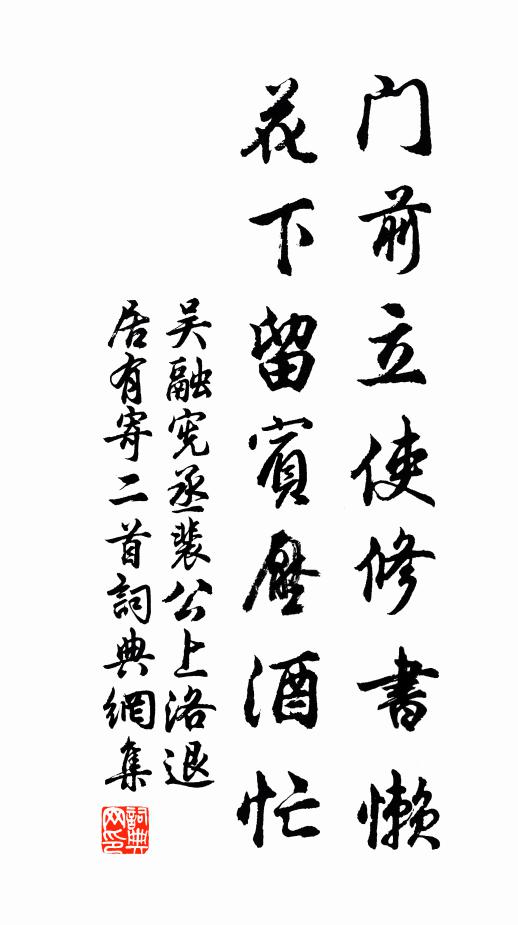 门前立使修書懒
花下留賓壓酒忙
吴融宪丞裴公上洛退
居有寄二首詞典網集
詞典网印